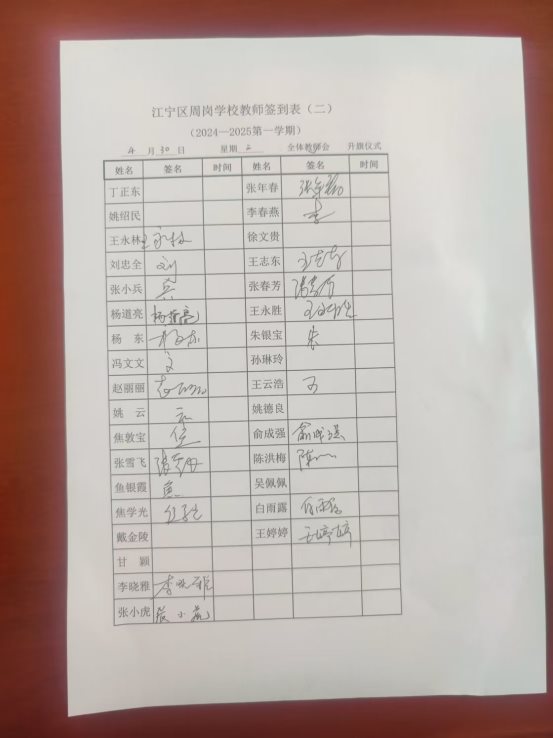 江宁区周岗学校教师签到表（二）
（2024—2025第一学期）
4 月 30 日 星期 二 全体教师会 升旗仪式
姓名 签名 时间 姓名 签名 时间
丁正东 张年春 张年春
姚绍民 李春燕 李
王永林 王永林 徐文贵
刘忠全 刘 王志东 王志东
张小兵 兵 张春芳 张春芳
杨道亮 杨道亮 王永胜 王永胜
杨 东 杨东 朱银宝 朱
冯文文 文 孙琳玲
赵丽丽 赵 王云浩 王
姚 云 云 姚德良
焦敦宝 俞成强 俞成强
张雪飞 陈洪梅 陈
鱼银霞 鱼 吴佩佩
焦学光 白雨露 白雨露
戴金陵 王婷婷 王婷婷
甘 颖
李晓雅 李晓雅
张小虎 张小虎